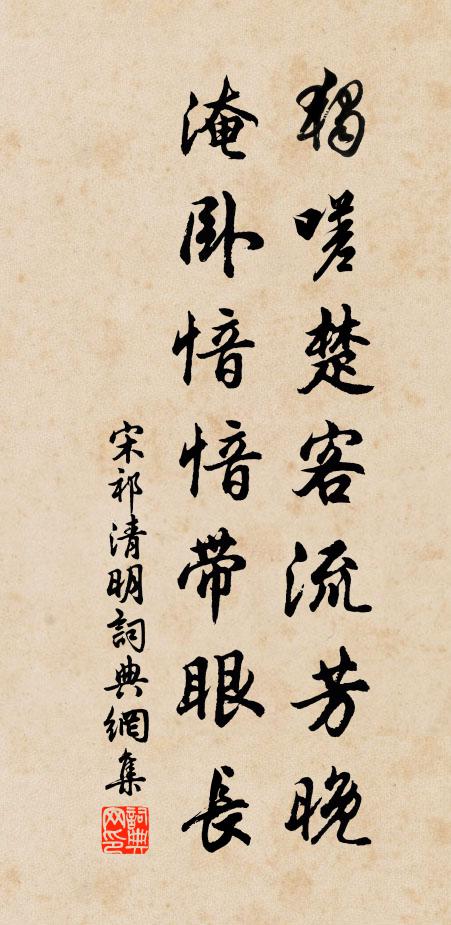 獨嗟楚客流芳晚
淹臥愔愔帶眼長
宋祁清明詞典網集
詞典網印